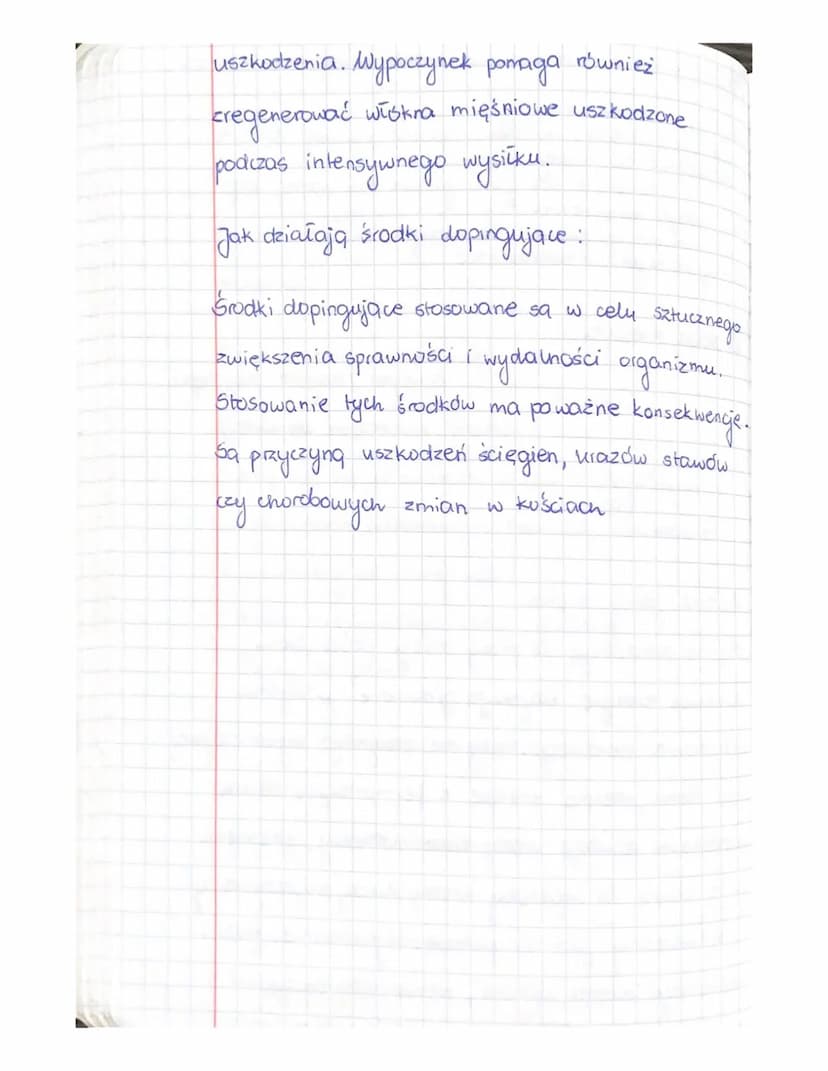 uszkodzenia. Wypoczynek pomaga również
zregenerować włókna mięśniowe uszkodzone
podczas intensywnego wysiłku.
Jak działają środki dopingujące :
Środki dopingujące stosowane są w celu sztucznego
zwiększenia sprawności i wydalności organizmu.
Stosowanie tych środków ma poważne konsekwencje.
Są przyczyną uszkodzeń ścięgien, urazów stawów
czy chorobowych zmian w kościach